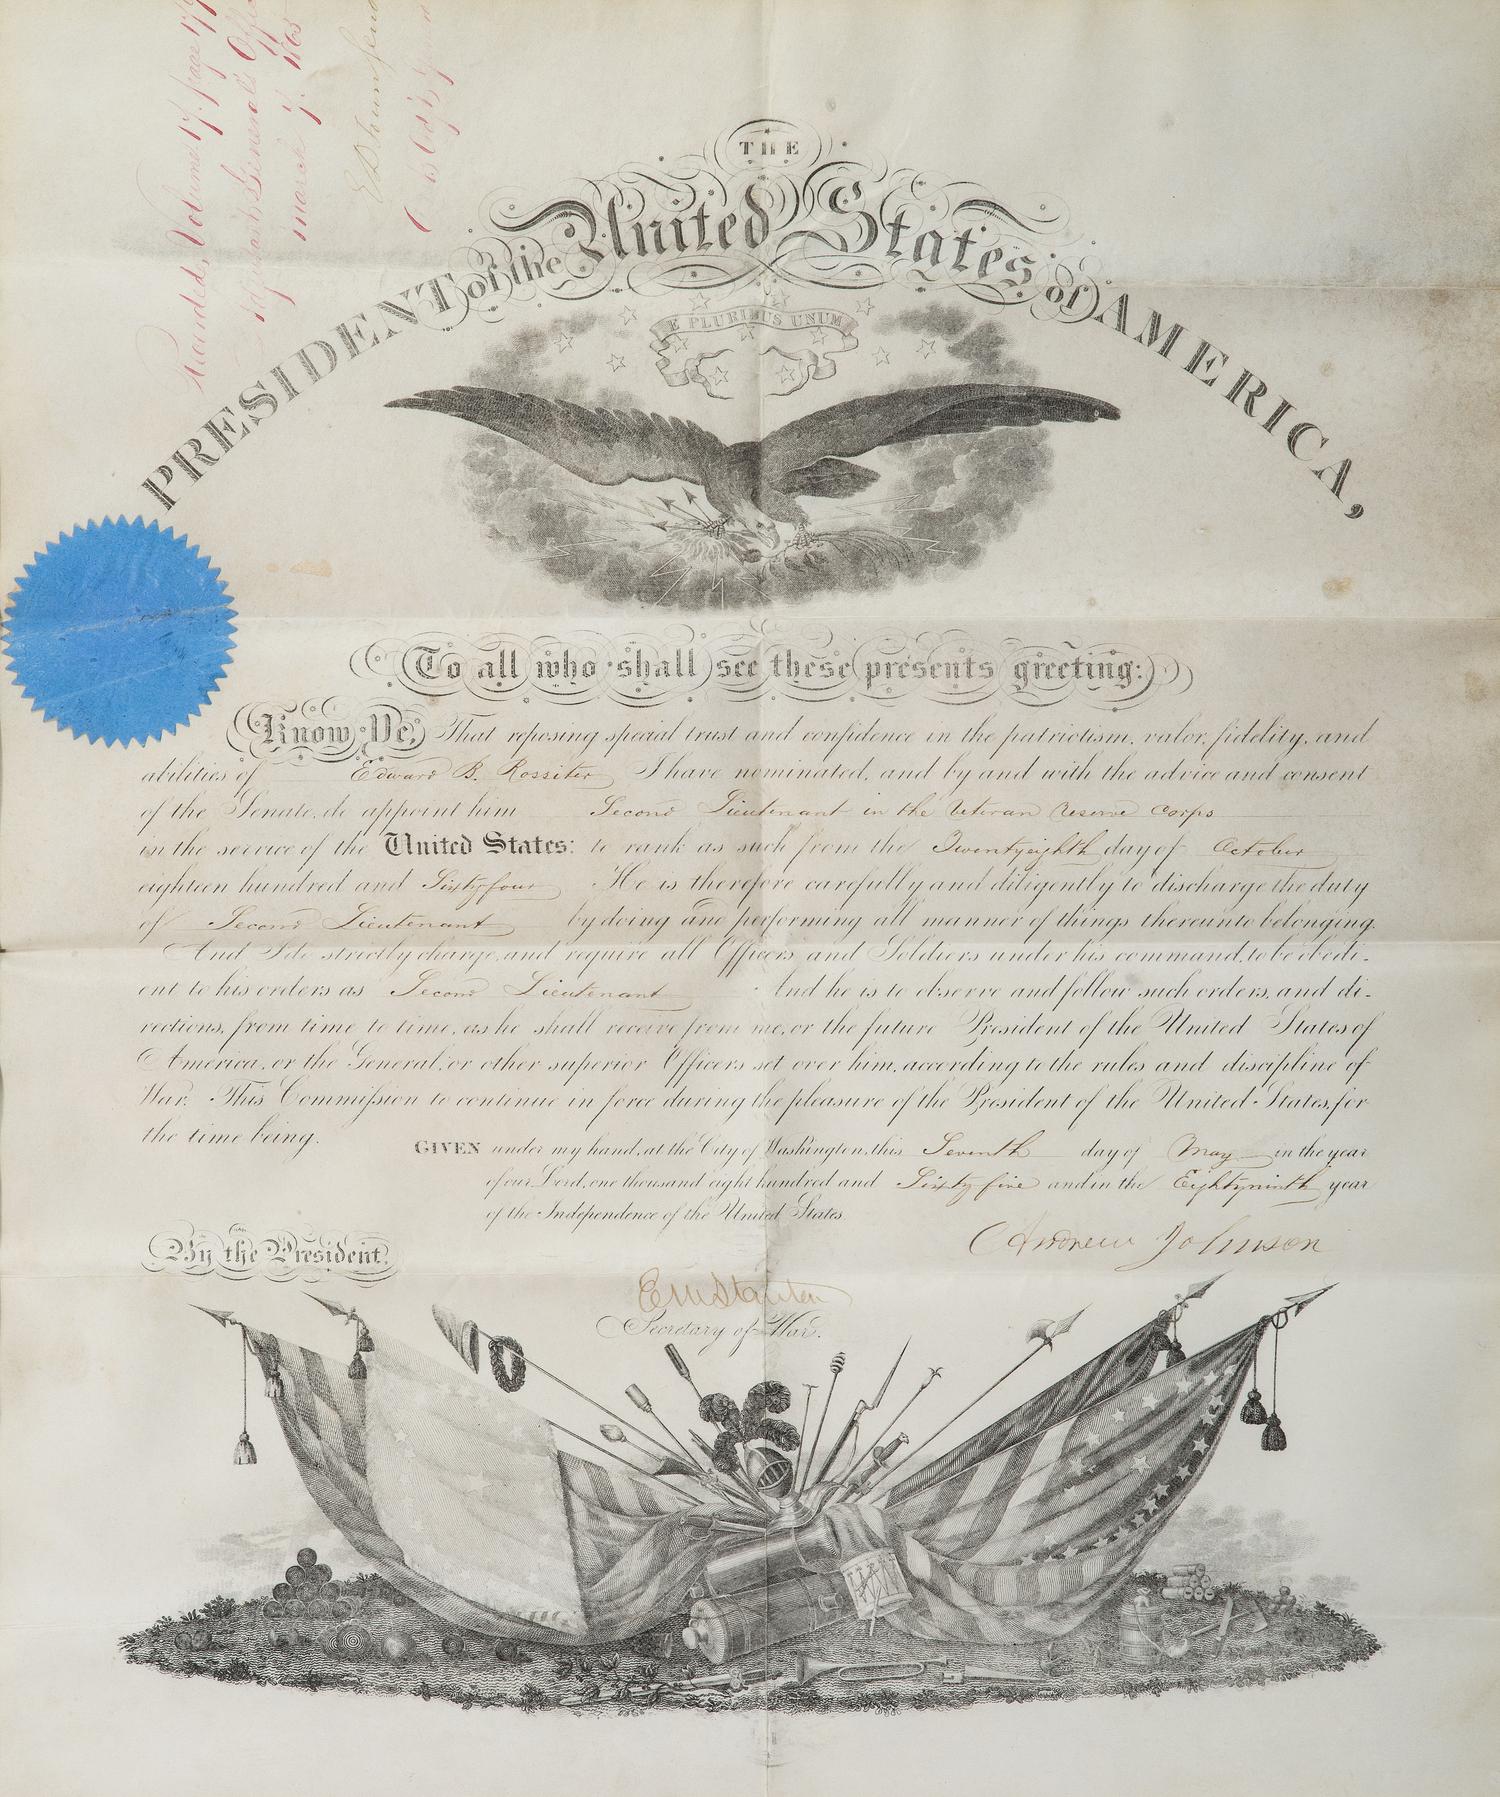 Recorded, Volume 17. page 17
Adjutant General's Office
March 7. 1865
E D Townsend
THE
PRESIDENT of the United States of AMERICA,
E PLURIBUS UNUM
To all who shall see these presents greeting:
Know Ye, That reposing special trust and confidence in the patriotism, valor, fidelity, and
abilities of Edward B. Rossiter I have nominated, and by and with the advice and consent
of the Senate, do appoint him Second Lieutenant in the Veteran Reserve Corps
in the service of the United States: to rank as such from the Twentyeighth day of October
eighteen hundred and Sixtyfour He is therefore carefully and diligently to discharge the duty
of Second Lieutenant by doing and performing all manner of things thereunto belonging.
And I do strictly charge, and require all Officers and Soldiers under his command, to be obedi-
ent to his orders as Second Lieutenant And he is to observe and follow such orders, and di-
rections, from time to time, as he shall receive from me, or the future President of the United States of
America, or the General, or other superior Officers set over him, according to the rules and discipline of
War. This Commission to continue in force during the pleasure of the President of the United States, for
the time being.
GIVEN under my hand, at the City of Washington, this Seventh day of May in the year
of our Lord, one thousand eight hundred and Sixty five and in the Eightyninth year
of the Independence of the United States.
Andrew Johnson
By the President.
E M Stanton
Secretary of War.